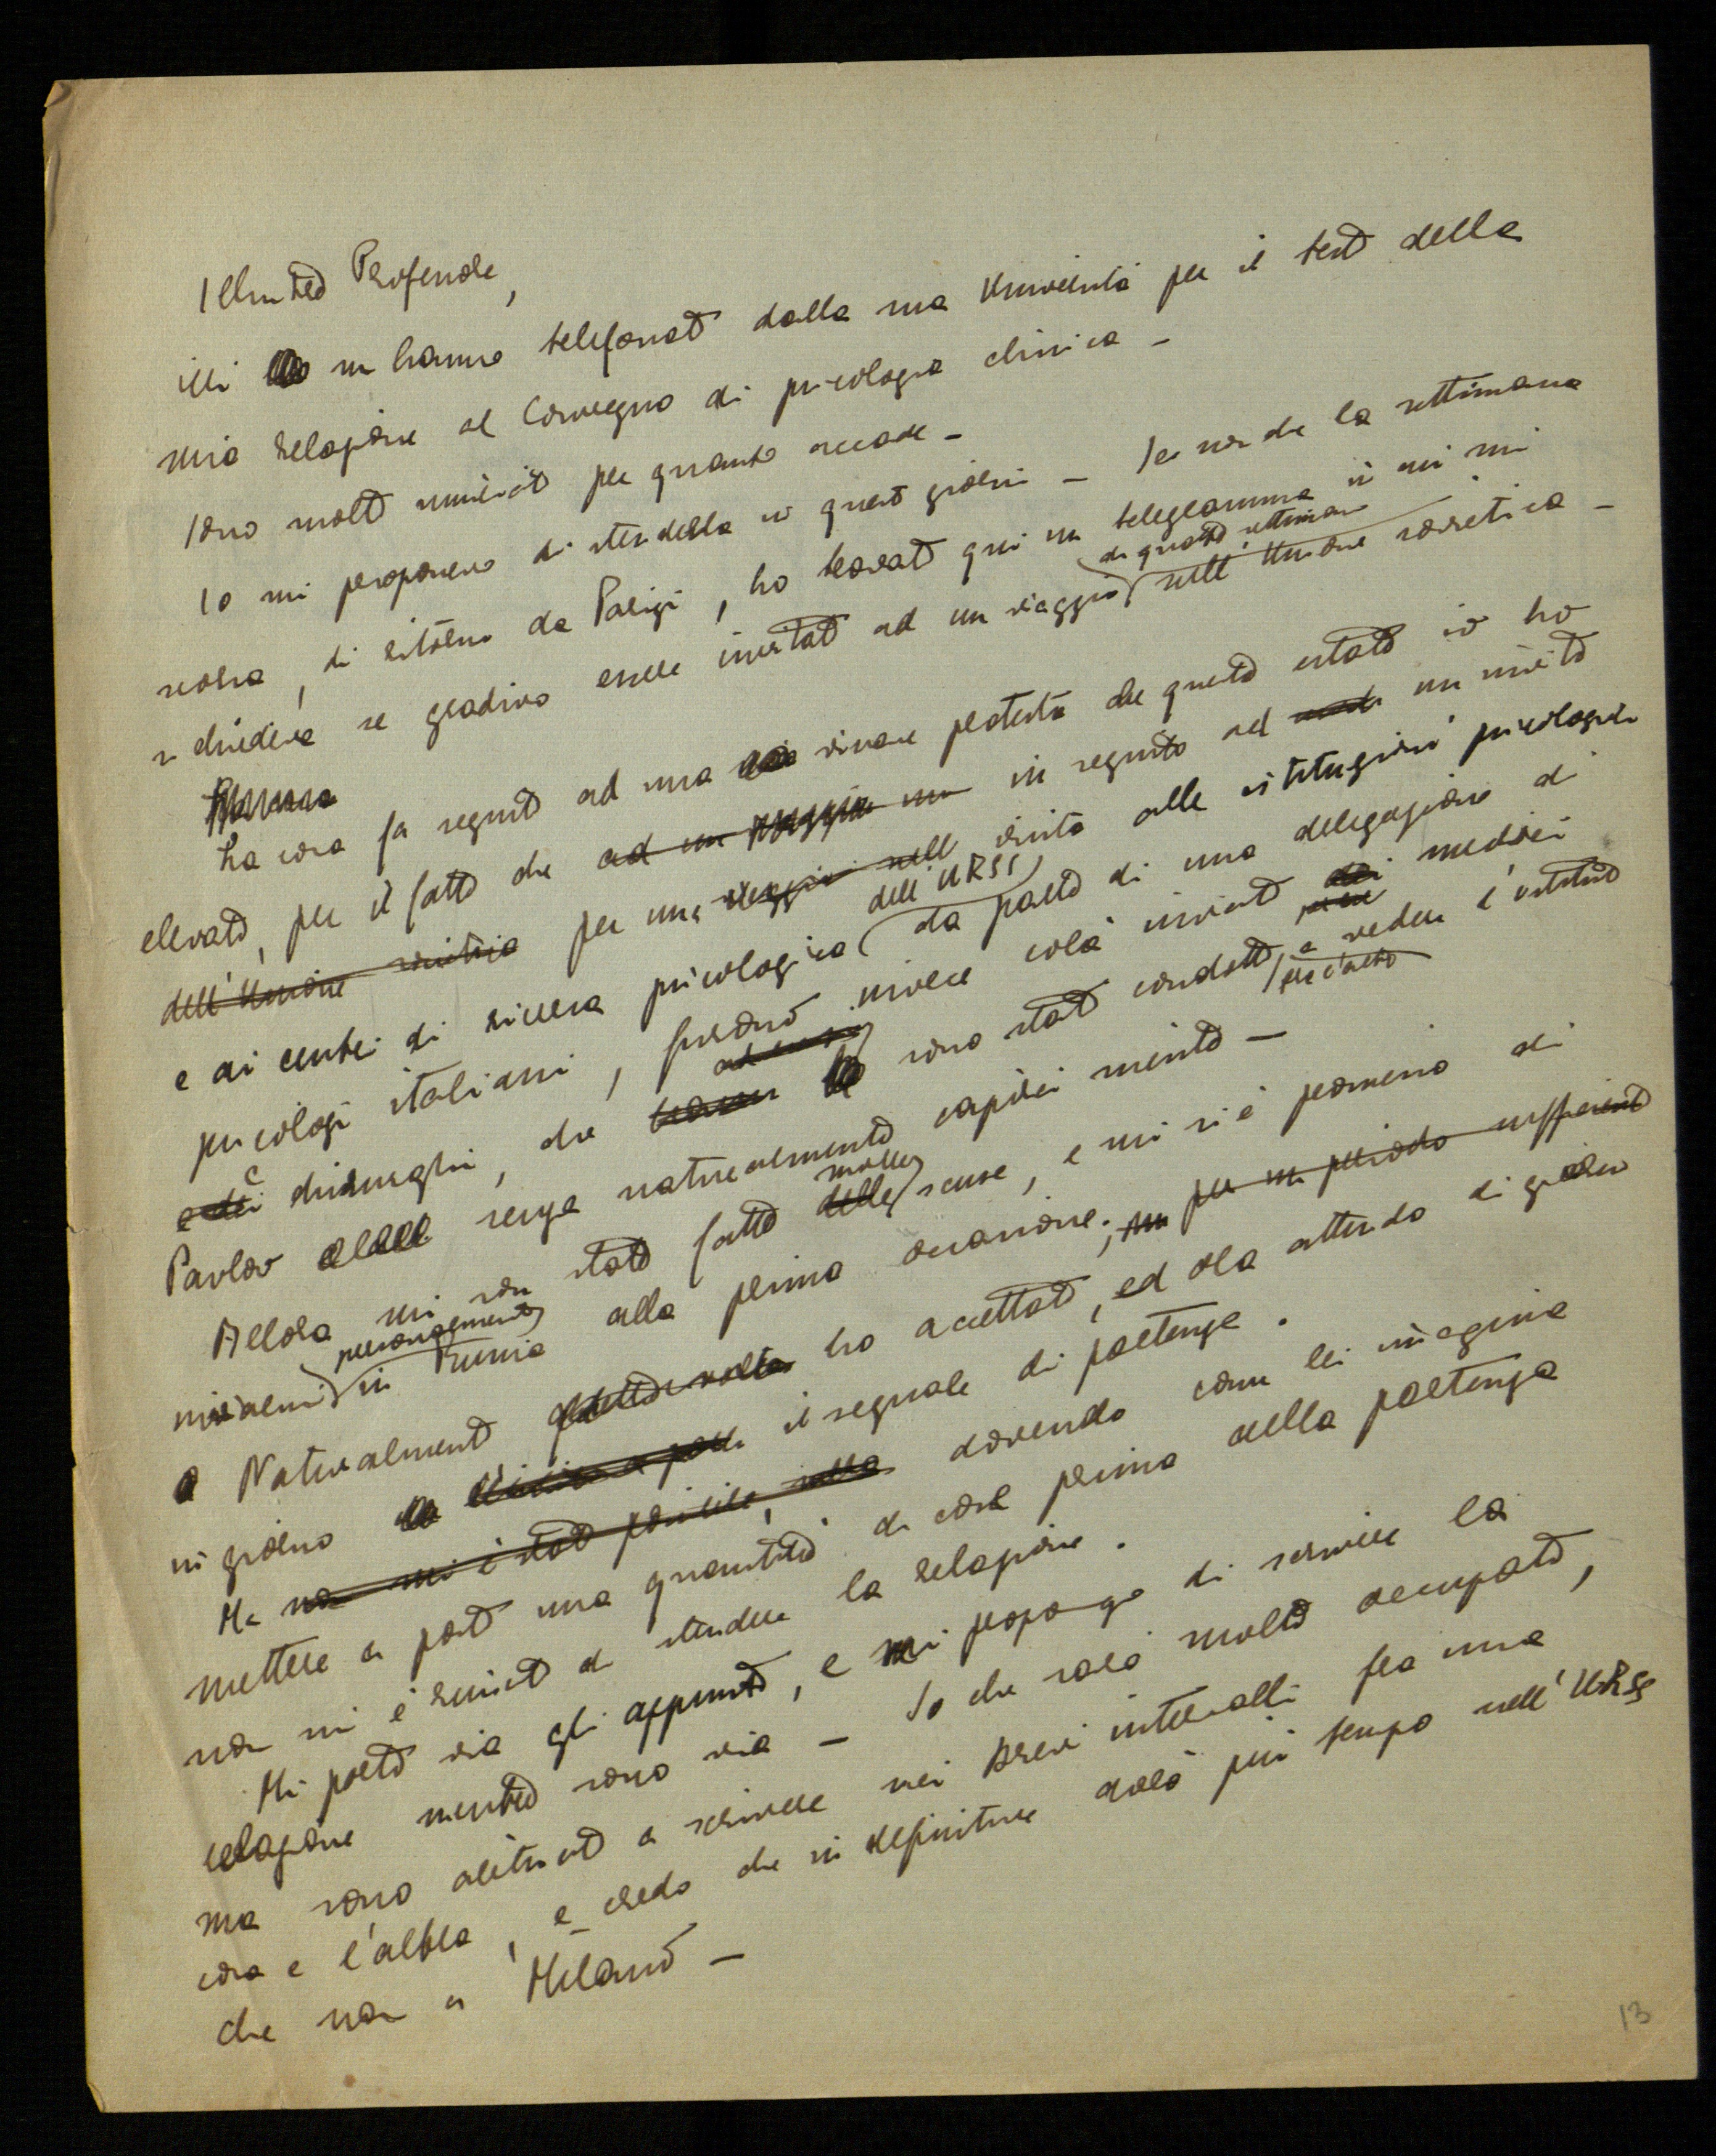 Illustre Professore,
mi hanno telefonato dalla sua Università per il testo della
mia relazione al Convegno di psicologia clinica –
Sono molto umiliato per quanto accade –
Io mi proponevo di stenderla in questi giorni – Se non che la settimana
scorsa, di ritorno da Parigi, ho trovato qui un telegramma in cui mi
si chiedeva se gradivo essere invitato ad un viaggio (di quattro settimane) nell'Unione sovietica –
La cosa fa seguito ad una vivace protesta che questa estate io ho
elevato, per il fatto che ad un viaggio in seguito ad un invito
dell'Unione sovietica per una visita alle istituzioni psicologiche
e ai centri di ricerca psicologica (dell'URSS) da parte di una delegazione di
psicologi italiani, furono invece colà inviati medici
e chirurghi, che sono stati condotti a vedere l'istituto
Pavlov senza naturalmente capirci niente –
Allora mi son state fatte molte scuse, e mi si è promesso di
inviarmi (personalmente) in Russia alla prima occasione; per un periodo sufficiente
Naturalmente ho accettato, ed ora attendo di giorno
in giorno il segnale di partenza.
Ma non mi è stato possibile, dovendo come lei immagina
mettere a posto una quantità di cose prima della partenza
non mi è riuscito di stendere la relazione.
Mi porto via gli appunti, e mi propongo di scrivere la
relazione mentre sono via – So che sarò molto occupato,
ma sono abituato a scrivere nei brevi intervalli fra una
cosa e l'altra, e credo che in definitiva avrò più tempo nell'URSS
che non a Milano –
13